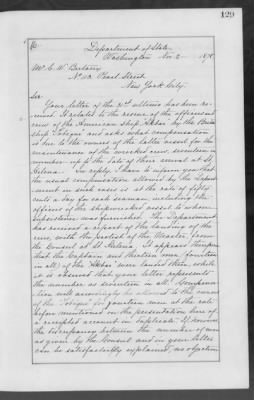 129
Department of State
Washington Nov. 2 1878
Mr. C. W.
No. 112 Pearl Street
New York City.
Sir
Your letter of the 30th ultimo has been re-
ceived. It relates to the rescue of the officers and
crew of the American ship by the British
ship and asks what compensation
is due to the owners of the latter vessel for the
maintenance of the wrecked crew seventeen in
number up to the date of their arrival at St
Helena. In reply I have to inform you that
the usual compensation allowed by the Depart-
ment in such cases is at the rate of fifty
cents a day for each seaman, including the
officers of the shipwrecked vessel to whom
subsistence was furnished. The Department
has received a report of the landing of the
crew, with the protest of the Master from
the Consul at St Helena. It appears therefrom
that the Captain and thirteen men fourteen
in all, of the were landed there, while
it is observed that your letter represents
the number as seventeen in all. Compensa-
tion will accordingly be allowed to the owners
of the for fourteen men at the rate
before mentioned on the presentation here of
a receipted account in duplicate. If, however
the discrepancy between the number of men
as given by the Consul and in your letter
can be satisfactorily explained, no objection